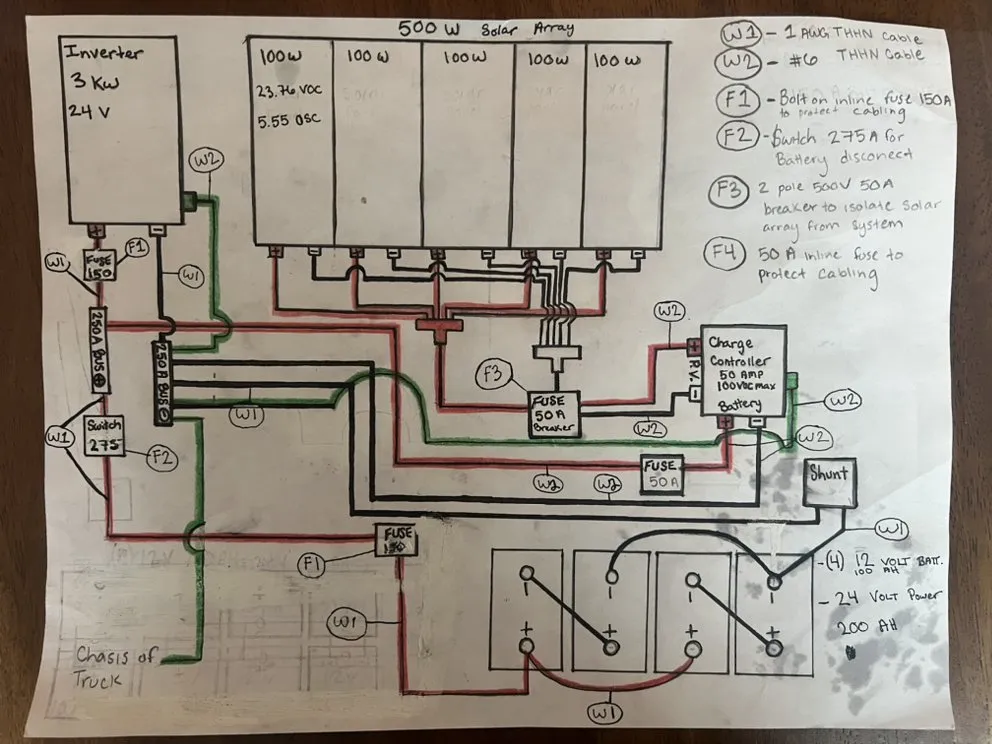 500 W Solar Array
Inverter
3 KW
24 V
100 W
100 W
100 W
100 W
100 W
23.76 VOC
5.55 OSC
W1 - 1 AWG THHN Cable
W2 - #6 THHN Cable
F1 - Bolt on inline fuse 150A
to protect cabling
F2 - Switch 275 A for
Battery disconect
F3 2 pole 500V 50A
breaker to isolate Solar
array from system
F4 50 A inline fuse to
protect cabling
W2
+
-
+
-
+
-
+
-
+
-
+
-
W1
FUSE
150
F1
W1
250A BUS +
250A BUS -
W2
Charge
Controller
50 AMP
100VDC max
Battery
+
P.V.
-
+
-
F3
FUSE
50A
Breaker
W2
W2
W1
W1
Switch
275
F2
W2
W2
W2
FUSE
50A
Shunt
FUSE
150
F1
W1
W1
- (4) 12 VOLT BATT.
100 AH
- 24 VOLT Power
200 AH
-
-
-
-
+
+
+
+
W1
Chasis of
Truck